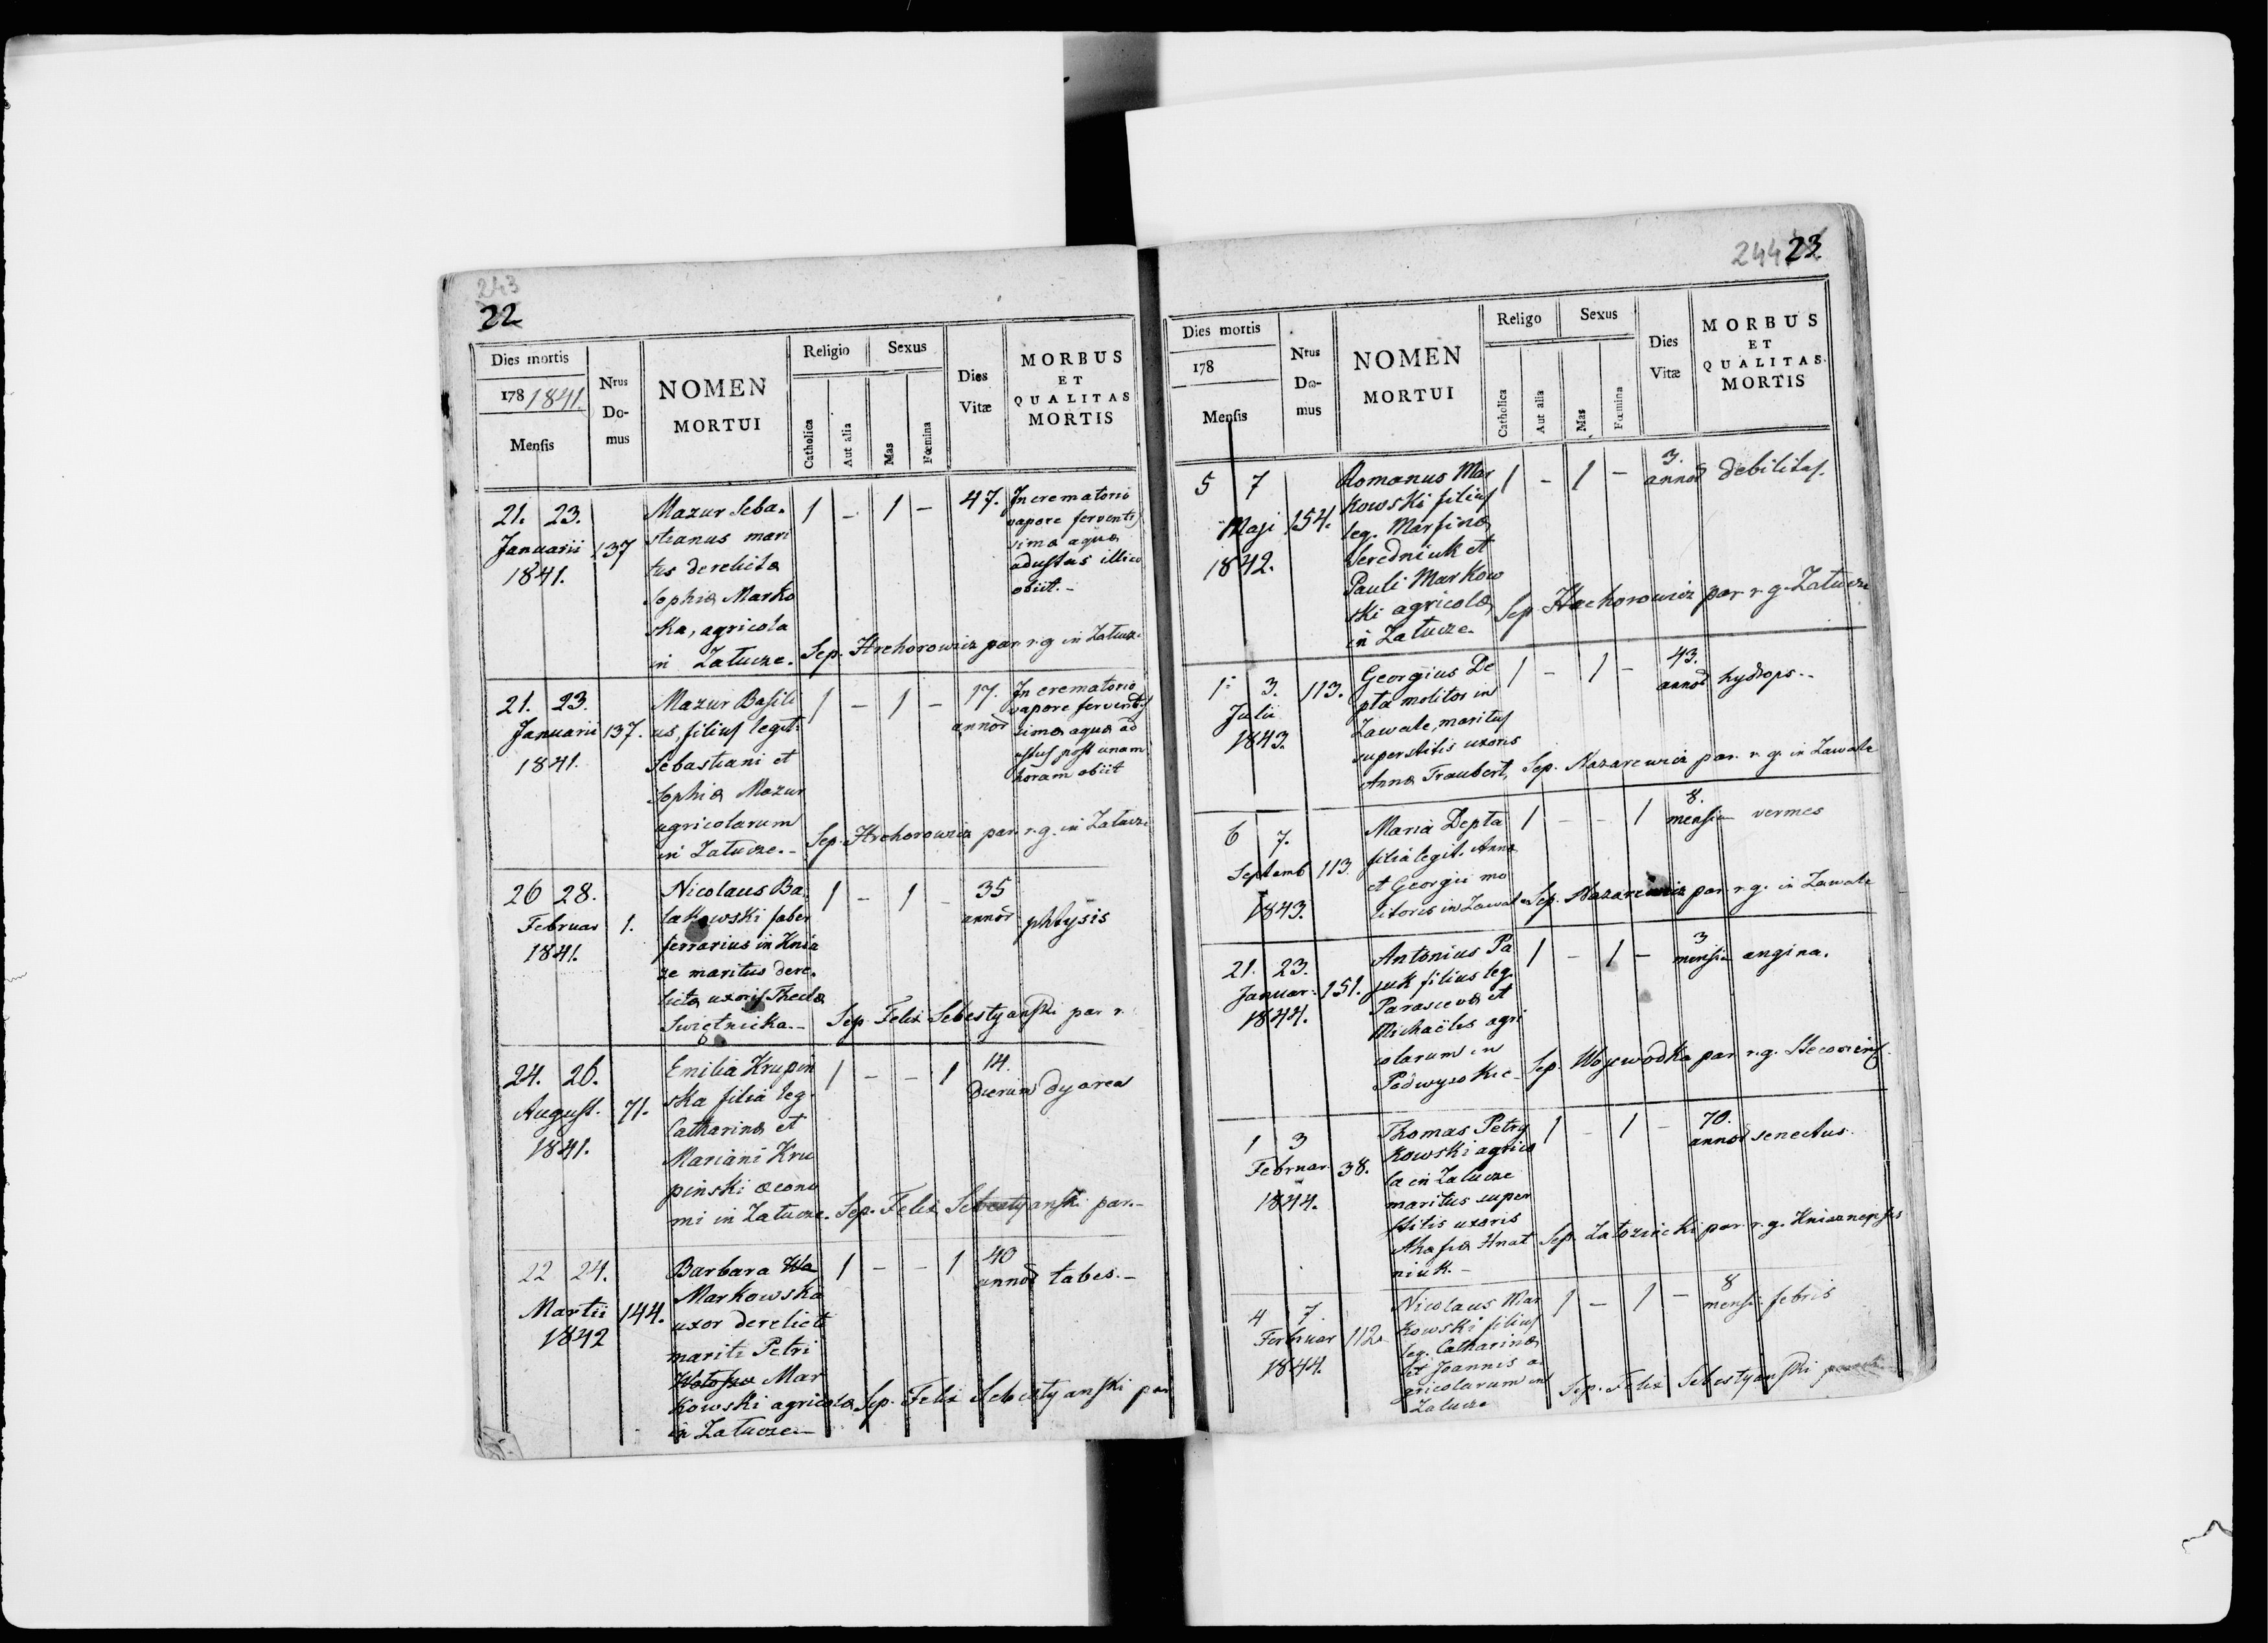 243
22
Dies mortis
178 1841
Mensis
Nrus
Do-
mus
NOMEN
MORTUI
Religio
Catholica
Aut alia
Sexus
Mas
Fœmina
Dies
Vitæ
MORBUS
ET
QUALITAS
MORTIS
21. 23.
Januarii
1841.
137
Mazur Seba-
stianus mari
tus derelictæ
Sophiæ Marko
ska, agricola
in Załucze.
1 - 1 -
47.
In crematorio
vapore ferventis
sima aqua
adustus illico
obiit.-
Sep. Hrehorowicz par. r. g. in Załucze
21. 23.
Januarii
1841.
137.
Mazur Basili
us, filius legit.
Sebastiani et
Sophiæ Mazur
agricolarum
in Załucze.-
1 - 1 -
17.
annor
In crematorio
vapore ferventis
sima aqua ad
ustus post unam
horam obiit
Sep. Hrehorowicz par. r. g. in Załucze
26 28.
Februar
1841.
1.
Nicolaus Ba
łakowski faber
ferrarius in Knia
ze maritus dere-
lictæ uxoris Theclæ
Swiętnicka.-
1 - 1 -
35
annor
phtysis
Sep. Felix Sebestyanski par r.
24. 26.
August.
1841.
71.
Emilia Krupin
ska filia leg.
Catharinæ et
Mariani Kru
pinski œcono
mi in Załucze.
1 - - 1
14.
dierum
dyarea
Sep. Felix Sebestyanski par.-
22 24.
Martii
1842
144.
Barbara Wo
Markowska
uxor derelicti
mariti Petri
Mar
kowski agricolæ
in Załucze.-
1 - - 1
40
annor
tabes.-
Sep. Felix Sebestyanski par
244 23.
Dies mortis
178
Mensis
Nrus
Do-
mus
NOMEN
MORTUI
Religo
Catholica
Aut alia
Sexus
Mas
Fœmina
Dies
Vitæ
MORBUS
ET
QUALITAS
MORTIS
5 7
Maji
1842.
154.
Romanus Mar
kowski filius
leg. Marfinæ
Seredniuk et
Pauli Markow
ski agricolæ
in Załucze.
1 - 1 -
3.
annor
debilitas.
Sep. Hrehorowicz par r. g. Załucze
1. 3.
Julii
1843.
113.
Georgius De
pta molitor in
Zawale, maritus
superstitis uxoris
Annæ Traubert,
1 - 1 -
43.
annor
hydrops.-
Sep. Nazarewicz par. r. g. in Zawale
6 7.
Septemb
1843.
113.
Maria Depta
filia legit. Annæ
et Georgii mo
litoris in Zawale
1 - - 1
8.
mensiu
vermes
Sep. Nazarewicz par. r. g. in Zawale
21. 23.
Januar.
1844.
151.
Antonius Pa
juk filius leg.
Parascevæ et
Michaëlis agri
colarum in
Podwysokie
1 - 1 -
3
mensiu
angina.
Sep. Wojewodka par r. g. Stecowens.
1 3
Februar.
1844.
38.
Thomas Petry
kowski agrico
la in Załucze
maritus super
stitis uxoris
Ahafiæ Hnat
niuk.-
1 - 1 -
70.
annor
senectus.
Sep. Łatozicki par r. g. Kniaznensis
4 7.
Ferbruar
1844.
112.
Nicolaus Mar
kowski filius
leg. Catharinæ
et Joannis a
gricolarum in
Załucze
1 - 1 -
8
mensi.
febris
Sep. Felix Sebestyanski